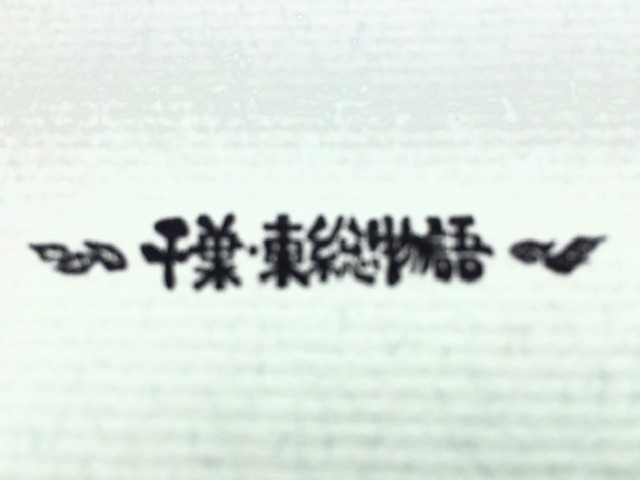 千葉・東総物語